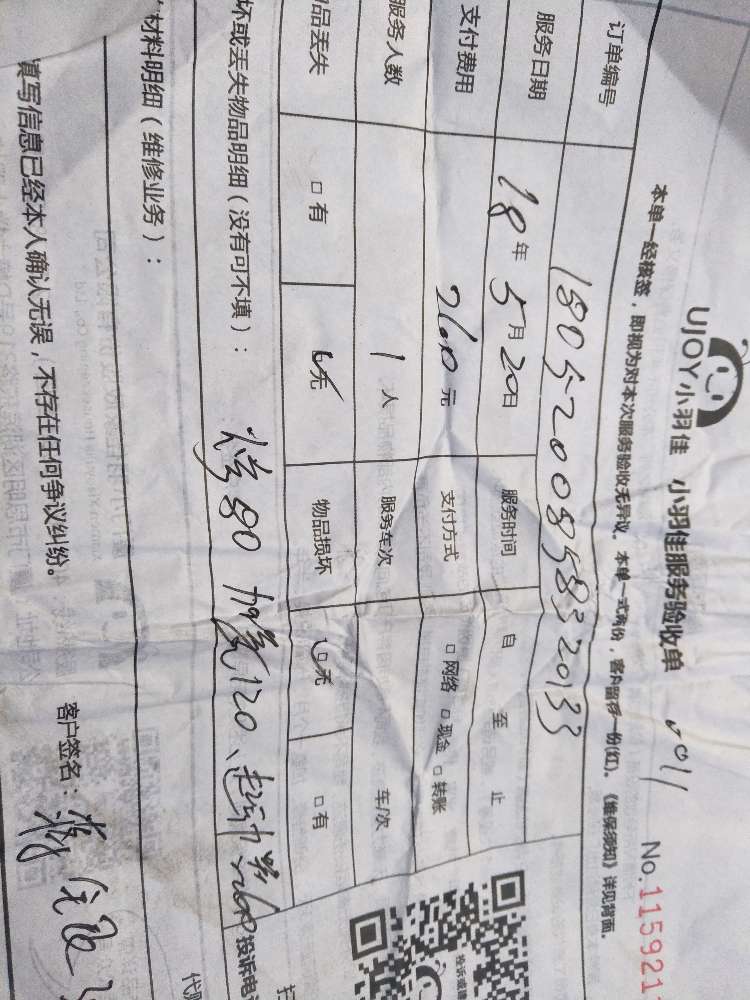 UJOY小羽佳 小羽佳服务验收单
No.115921
本单一经核签，即视为对本次服务验收无异议。本单一式两份，客户留存一份(红)。《维保须知》详见背面。
订单编号 1805200858320133
服务日期 18年5月20日 服务时间 自 至 止
支付费用 260元 支付方式 □网络 □现金 □转账
服务人数 1人 服务车次 车/次
品丢失 □有 □无 物品损坏 □无 □有
坏或丢失物品明细（没有可不填）：
80 加氟120、 260
投诉电
材料明细（维修业务）：
填写信息已经本人确认无误，不存在任何争议纠纷。
客户签名：